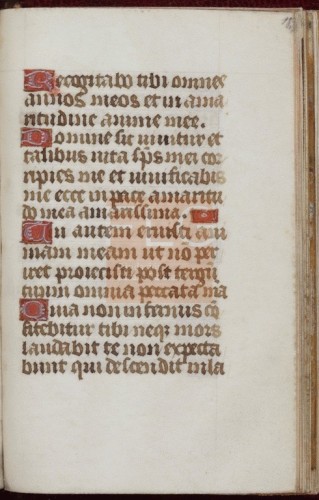 Recogitabo tibi omnes
annos meos et in ama
ritudine anime mee.
Domine sic vivitur et
talibus vita sps mei cor
ripies me et vivificabis
me ecce in pace amaritu
do mea amarissima.
Tu autem eruisti ani
mam meam ut nō per
iret proiecisti post tergū
tuum omnia peccata m̄a
Quia non infernus cō
fitebitur tibi neqꝫ mors
laudabit te non expecta
bunt qui descendūt in la